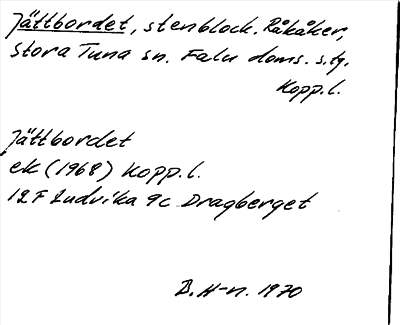 Jättbordet, stenblock. Råkåker,
Stora Tuna sn. Falu doms. s.tg.
Kopp.l.
Jättbordet
ek (1968) Kopp.l.
12F Ludvika 9c Dragberget
B. H-n. 1970